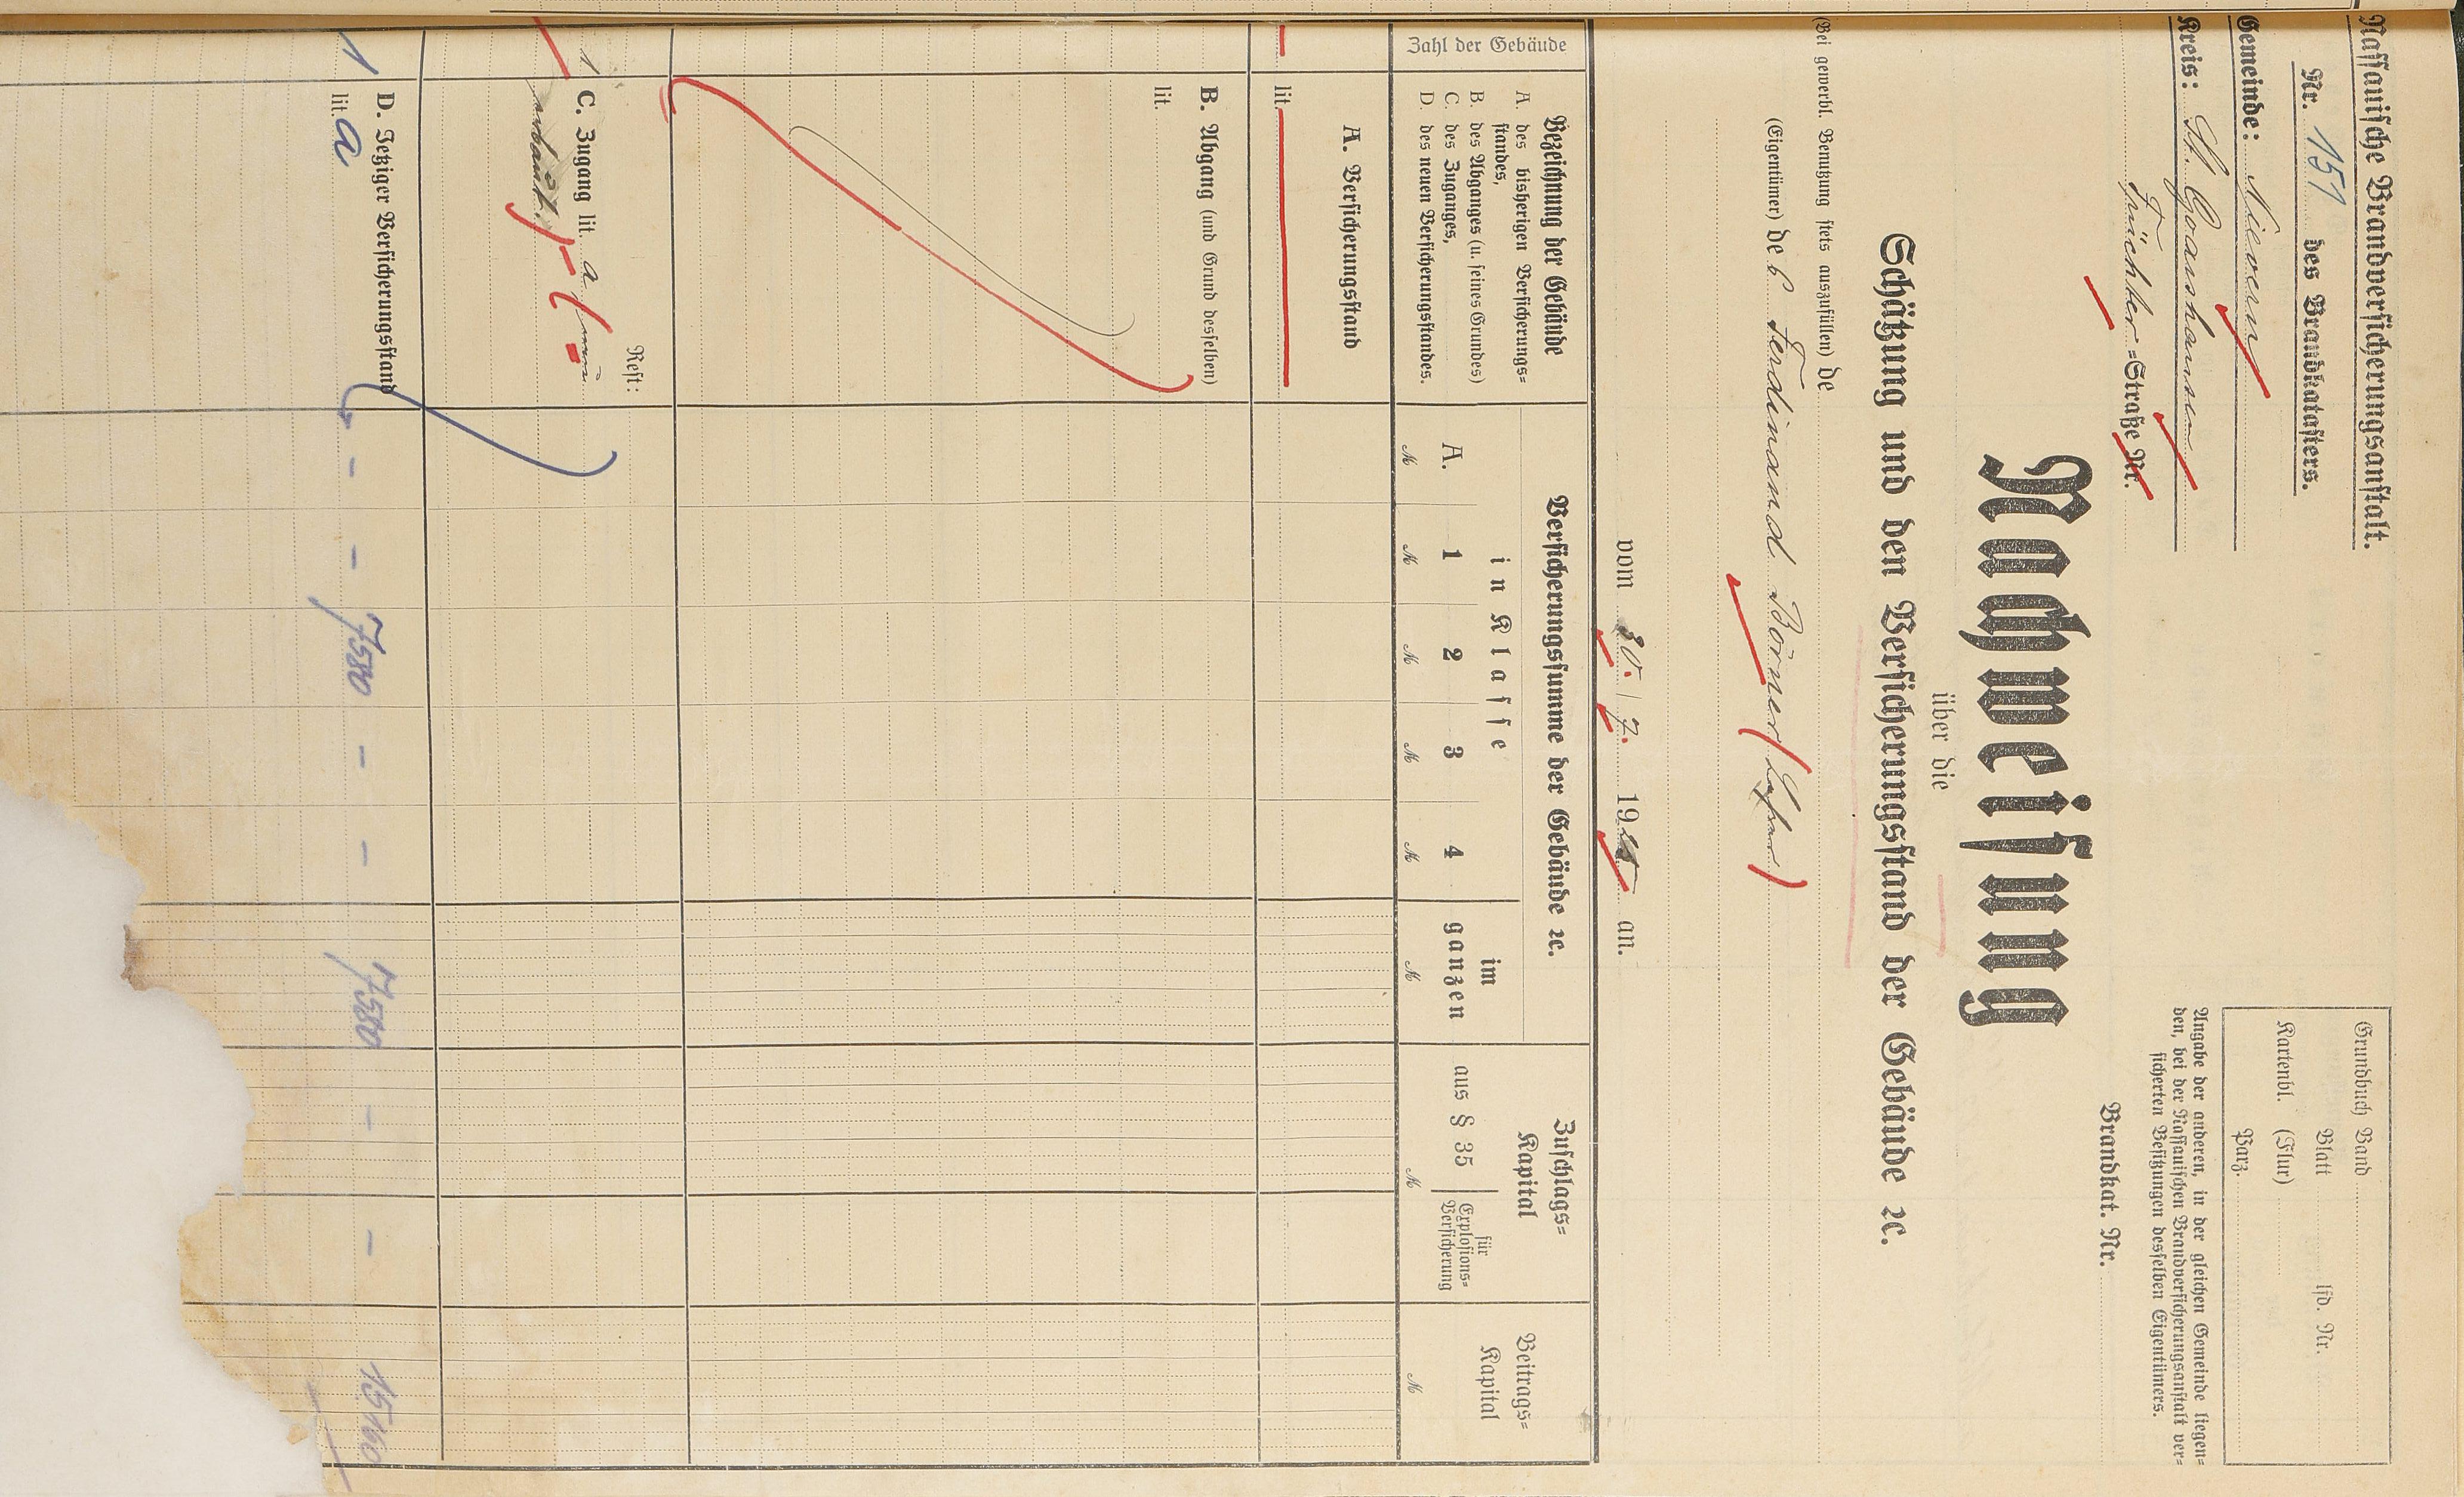 Nassauische Brandversicherungsanstalt.
Nr. 151 des Brandkatasters.
Gemeinde: Nievern
Kreis: St. Goarshausen
Früchter =Straße Nr.
Grundbuch Band
Blatt lfd. Nr.
Kartenbl. (Flur)
Parz.
Angabe der anderen, in der gleichen Gemeinde liegen=
den, bei der Nassauischen Brandversicherungsanstalt ver=
sicherten Besitzungen desselben Eigentümers.
Brandkat. Nr.
Nachweisung
über die
Schätzung und den Versicherungsstand der Gebäude ꝛc.
(Bei gewerbl. Benutzung stets auszufüllen) de
(Eigentümer) des Ferdinand Börner
vom 30. / 7. 19 an.
Zahl der Gebäude
Bezeichnung der Gebäude
A. des bisherigen Versicherungs=
standes,
B. des Abganges (u. seines Grundes)
C. des Zuganges,
D. des neuen Versicherungsstandes.
Versicherungssumme der Gebäude ꝛc.
in Klasse
A. 1 2 3 4
ℳ ℳ ℳ ℳ ℳ
im
ganzen
ℳ
Zuschlags=
Kapital
aus § 35
ℳ
für
Explosions=
Versicherung
Beitrags=
Kapital
ℳ
A. Versicherungsstand
lit.
B. Abgang (und Grund desselben)
lit.
Rest:
1 C. Zugang lit. a
erbaut.
D. Jetziger Versicherungsstand
1 lit. a - - 7580 - - 7580 - - 15160